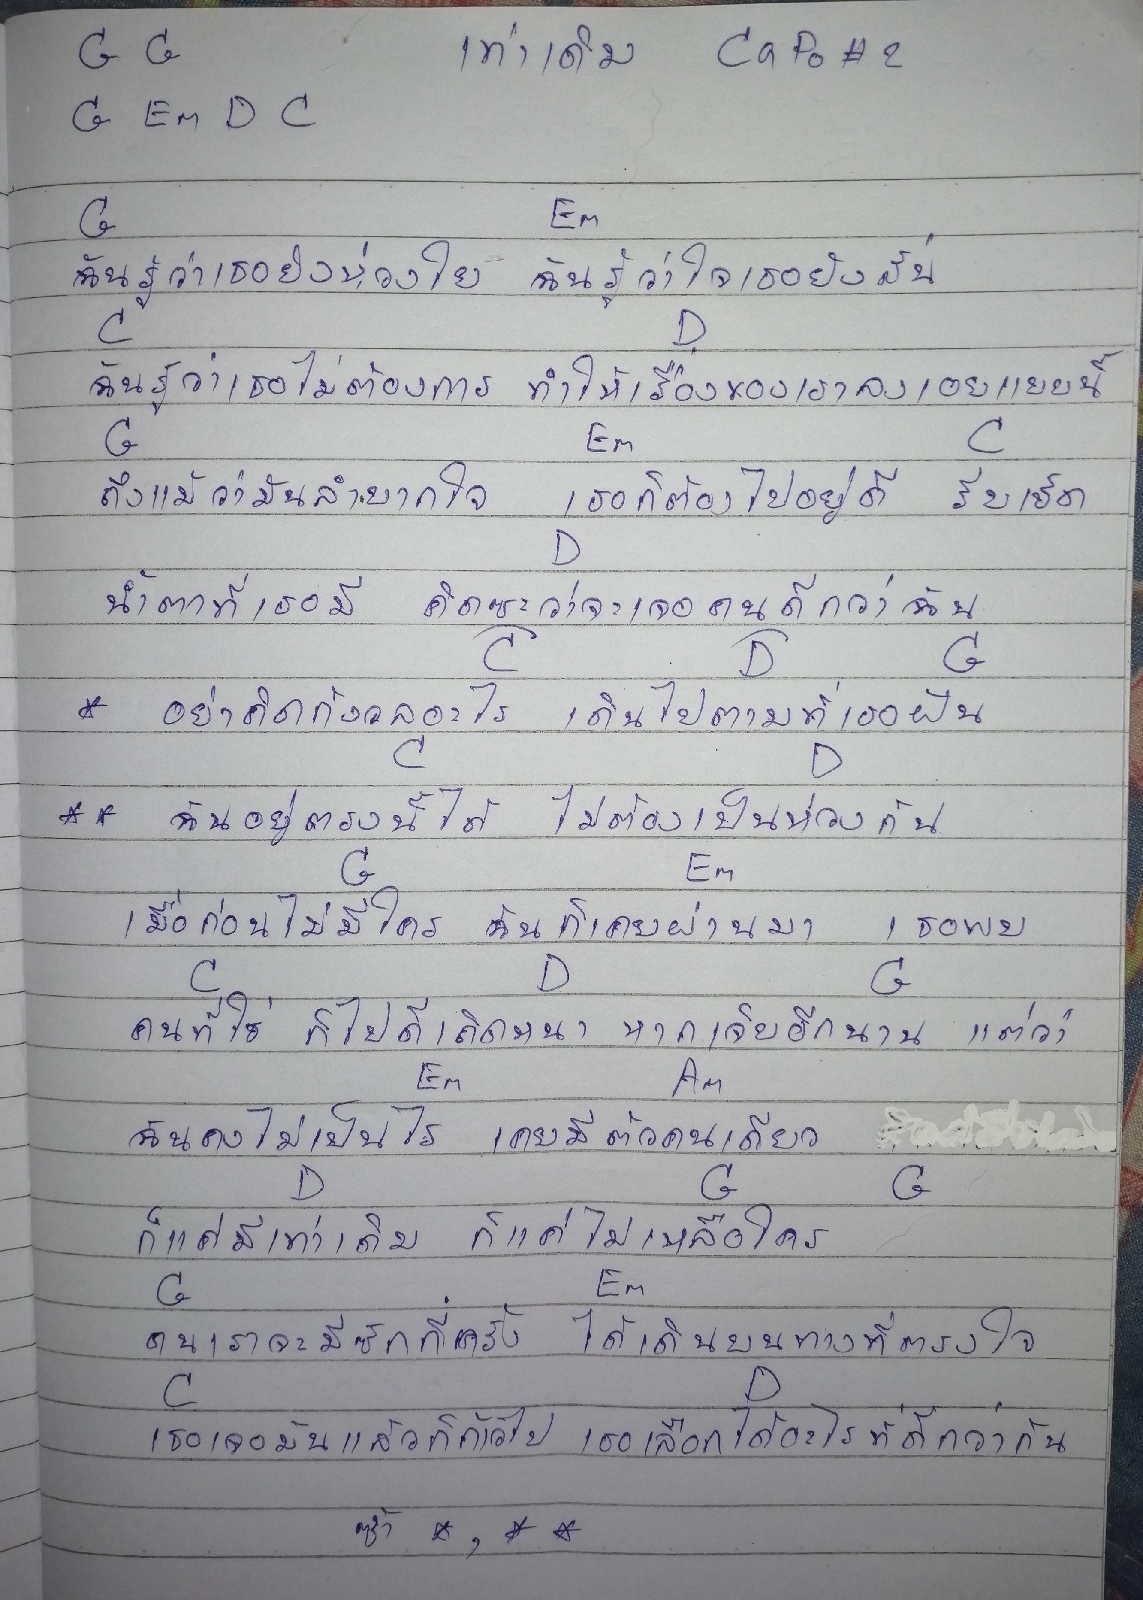 G G เท่าเดิม Capo # 2
G Em D C
G Em
ฉันรู้ว่าเธอยังห่วงใย ฉันรู้ว่าใจเธอยังสั่น
C D
ฉันรู้ว่าเธอไม่ต้องการ ทำให้เรื่องของเราลงเอยแบบนี้
G Em C
ถึงแม้ว่ามันลำบากใจ เธอก็ต้องไปอยู่ดี รีบเช็ด
D
น้ำตาที่เธอมี คิดซะว่าจะเจอคนดีกว่าฉัน
C D G
* อย่าคิดกังวลอะไร เดินไปตามที่เธอฝัน
C D
** ฉันอยู่ตรงนี้ได้ ไม่ต้องเป็นห่วงกัน
G Em
เมื่อก่อนไม่มีใคร ฉันก็เคยผ่านมา เธอพบ
C D G
คนที่ใช่ ก็ไปดีเถิดหนา หากเจ็บอีกนาน แต่ว่า
Em Am
ฉันคงไม่เป็นไร เคยมีตัวคนเดียว
D G G
ก็แค่มีเท่าเดิม ก็แค่ไม่เหลือใคร
G Em
คนเราจะมีซักกี่ครั้ง ได้เดินบนทางที่ตรงใจ
C D
เธอเจอมันแล้วก็คว้าไป เธอเลือกได้อะไรที่ดีกว่ากัน
ซ้ำ *, **